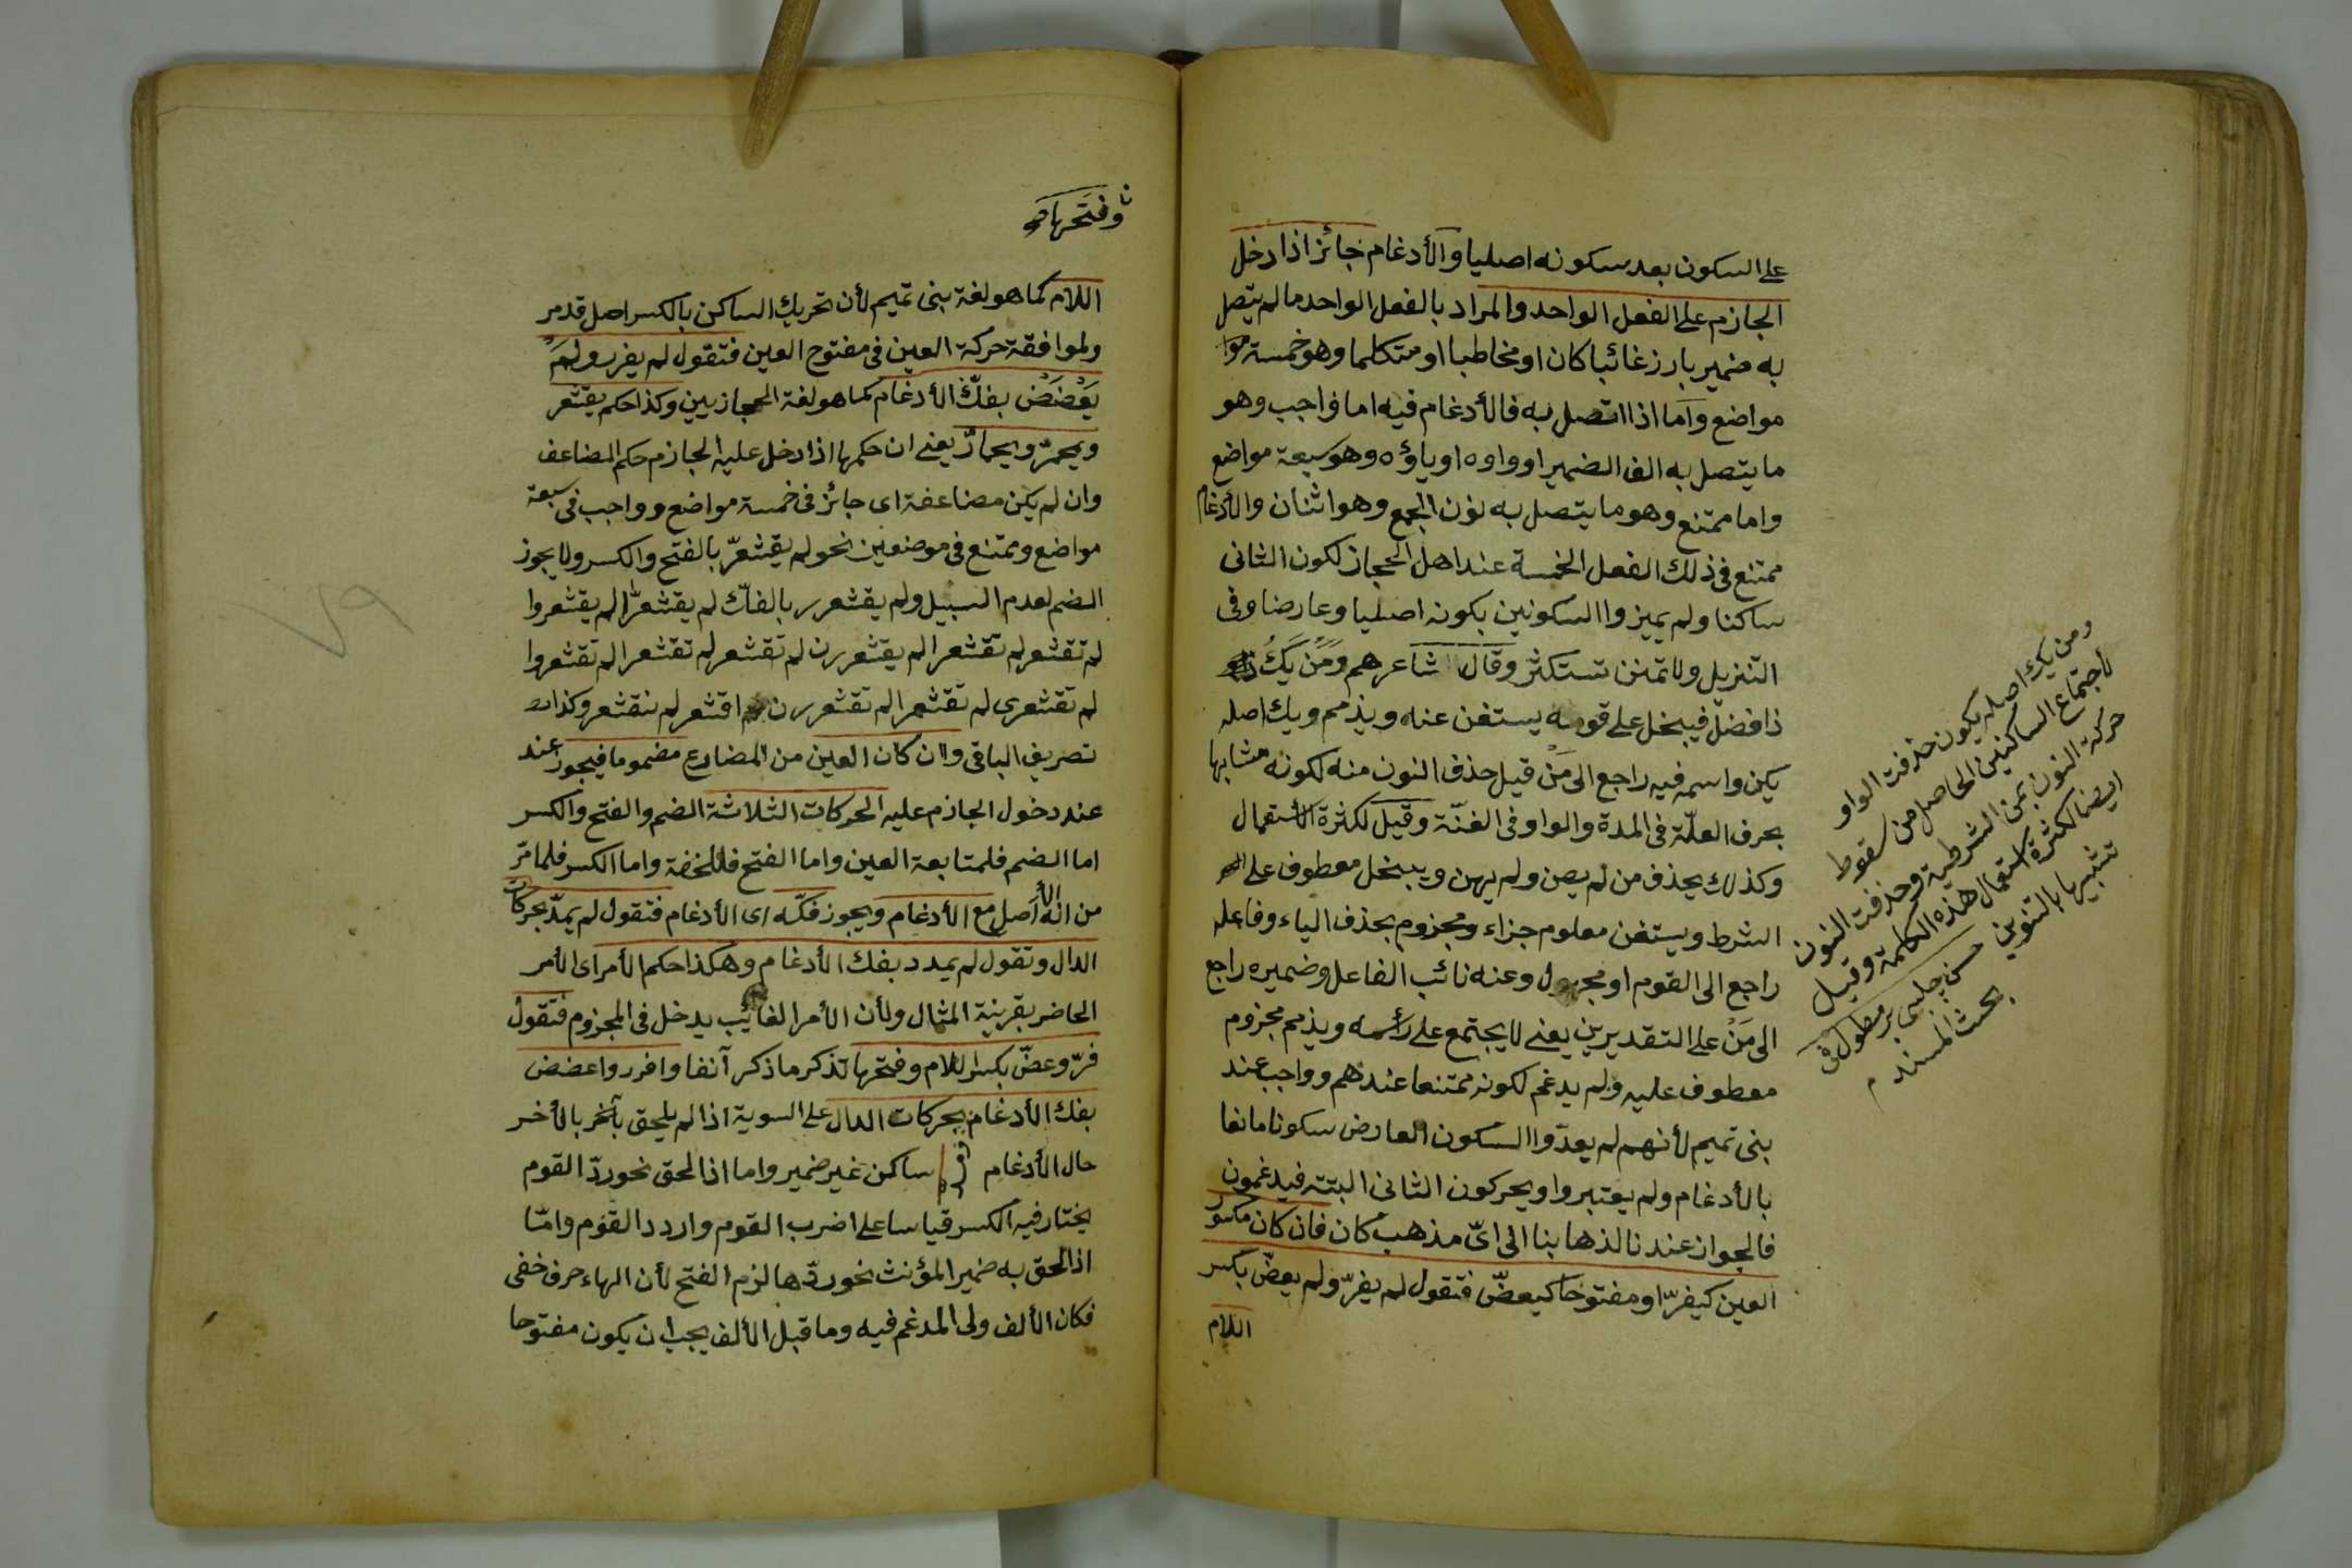 على السكون بعد سكونه اصليا والأدغام جائز اذا دخل
الجازم على الفعل الواحد والمراد بالفعل الواحد ما لم يتصل
به ضمير بارز غائبا كان او مخاطبا او متكلما وهو خمسة موا
مواضع واما اذا اتصل به فالأدغام فيه اما واجب وهو
ما يتصل به الف الضمير او واوه او ياؤه وهو سبعة مواضع
واما ممتنع وهو ما يتصل به نون الجمع وهو اثنان والأدغام
ممتنع فى ذلك الفعل الخمسة عند اهل الحجاز لكون الثانى
ساكنا ولم يميزوا السكونين بكونه اصليا وعارضا وفى
التنزيل ولا تمنن تستكثر وقال شاعرهم وَمَنْ يَكُ
ذا فضل فيبخل على قومه يستغن عنه ويذمم ويك اصله
يكن واسمه فيه راجع الى مَنْ قيل حذف النون منه لكونه مشابها
بحرف العلّة فى المدة والواو فى الغنّة وقيل لكثرة الأستعمال
وكذلك يحذف من لم يصن ولم يهن ويبخل معطوف على
الشرط ويستغن معلوم جزاء ومجزوم بحذف الياء وفاعله
راجع الى القوم او مجهول وعنه نائب الفاعل وضميره راجع
الى مَنْ على التقديرين يعنى لا يجتمع على رأسه ويذمم مجزوم
معطوف عليه ولم يدغم لكونه ممتنعا عندهم وواجب عند
بنى تميم لأنهم لم يعدّوا السكون العارض سكونا مانعا
بالأدغام ولم يعتبروا ويحركون الثانى البتته فيدغمون
فالجواز عندنا لذهابنا الى اىّ مذهب كان فان كان مكسور
العين كيفرّ او مفتوحا كيعضّ فتقول لم يفرّ ولم يعضّ بكسر
اللام
ومن يك اصله يكون حذفت الواو
لاجتماع الساكنين الحاصل من سقوط
حركة النون بمن الشرطية وحذفت النون
ايضا لكثرة استعمال هذه الكلمة وقيل
تشبيها بالتنوين حسن چلبى بر مطول فى
بحث المسند م
وفتحها
اللام كما هو لغة بنى تميم لأن تحريك الساكن بالكسر اصل قد مر
ولموافقة حركة العين فى مفتوح العين فتقول لم يفرر ولَمْ
يَعْضَضْ بفكّ الأدغام كما هو لغة الحجازيين وكذا حكم يقشعر
ويحمرّ ويحمارّ يعنى ان حكمها اذا دخل عليه الجازم حكم المضاعف
وان لم يكن مضاعفة اى جائز فى خمسة مواضع وواجب فى سبعة
مواضع وممتنع فى موضعين نحو لم يقشعرّ بالفتح والكسر ولا يجوز
الضم لعدم السبيل ولم يقشعرر بالفكّ لم يقشعرّا لم يقشعروا
لم تقشعر لم تقشعرا لم يقشعررن لم تقشعر لم تقشعرا لم تقشعروا
لم تقشعرى لم تقشعرا لم تقشعررن لم اقشعر لم نقشعر وكذا
تصريف الباقى وان كان العين من المضارع مضموما فيجوز عند
عند دخول الجازم عليه الحركات الثلاثة الضم والفتح والكسر
اما الضم فلمتابعة العين واما الفتح فللخفة واما الكسر فلما مرّ
من انه الأصل مع الأدغام ويجوز فكّه اى الأدغام فتقول لم يمدّ بحركات
الدال وتقول لم يمدد بفك الأدغام وهكذا حكم الأمر اى الأمر
الحاضر بقرينة المثال ولأن الأمر الغائب يدخل فى المجزوم فتقول
فرّ وعضّ بكسر اللام وفتحها تذكر ما ذكر آنفا وافرر واعضض
بفك الأدغام بحركات الدال على السوية اذا لم يلحق بآخر بالأخر
حال الأدغام ساكن غير ضمير واما اذا لحق نحو ردّ القوم
يختار فيه الكسر قياسا على اضرب القوم واردد القوم وامّا
اذا لحق به ضمير المؤنث نحو ردّها لزم الفتح لأن الهاء حرف خفى
فكان الألف ولى المدغم فيه وما قبل الألف يجب ان يكون مفتوحا
٧٩